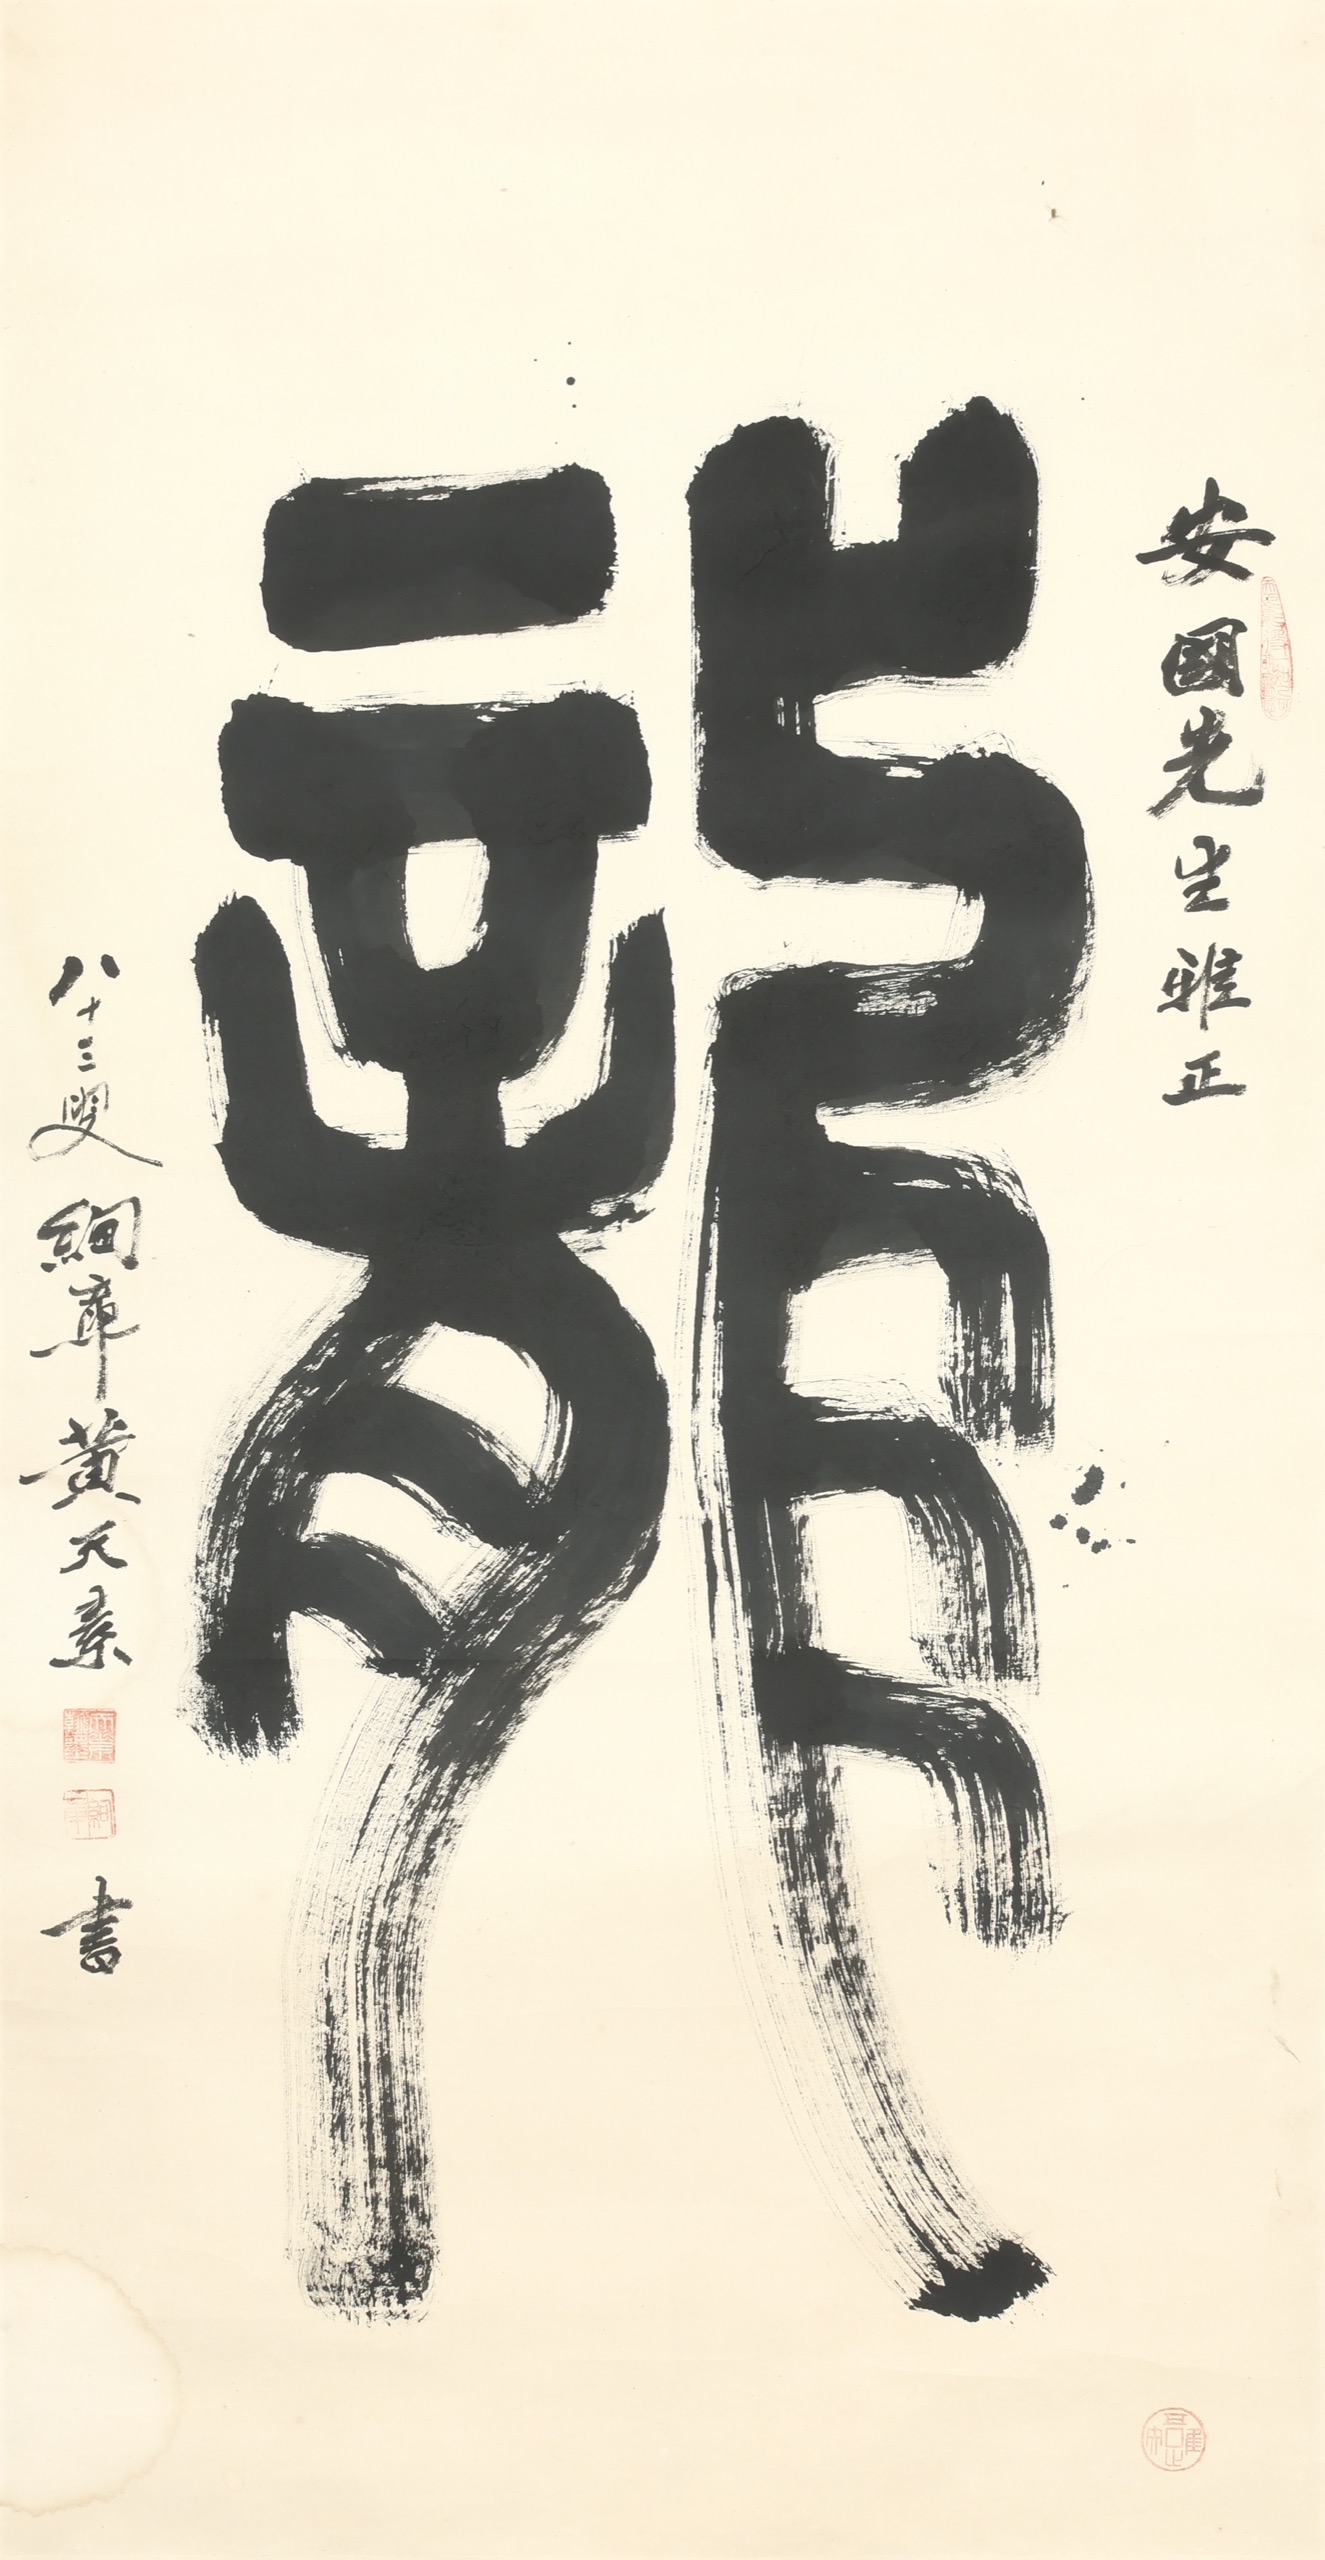 安國先生雅正
龍
八十三叟絅章黃天素書